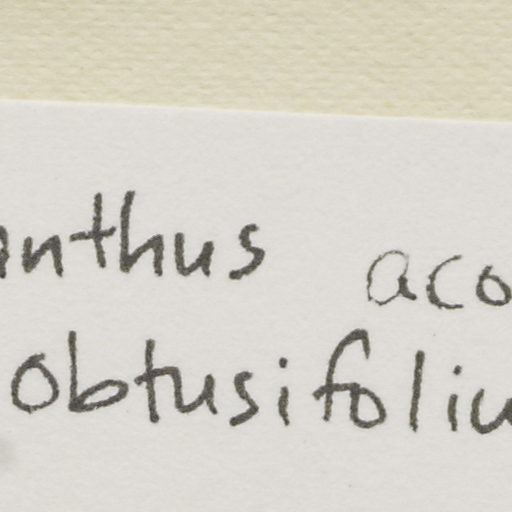 anthus aco
obtusifoliu